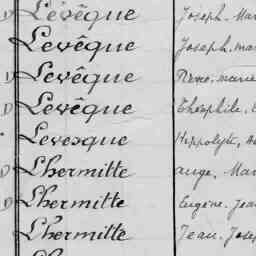 Lévêque Joseph. Mar
Levêque Joseph. mar
Levêque René. marie
Levêque Théophile.
Levesque Hippolyte,
Lhermitte ange, Mar
Lhermitte Eugène. Jea
Lhermitte Jean. Jose